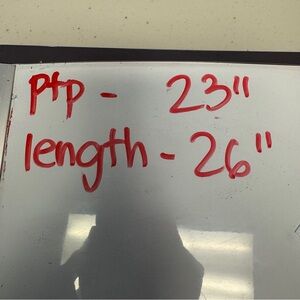 ptp - 23"
length - 26"